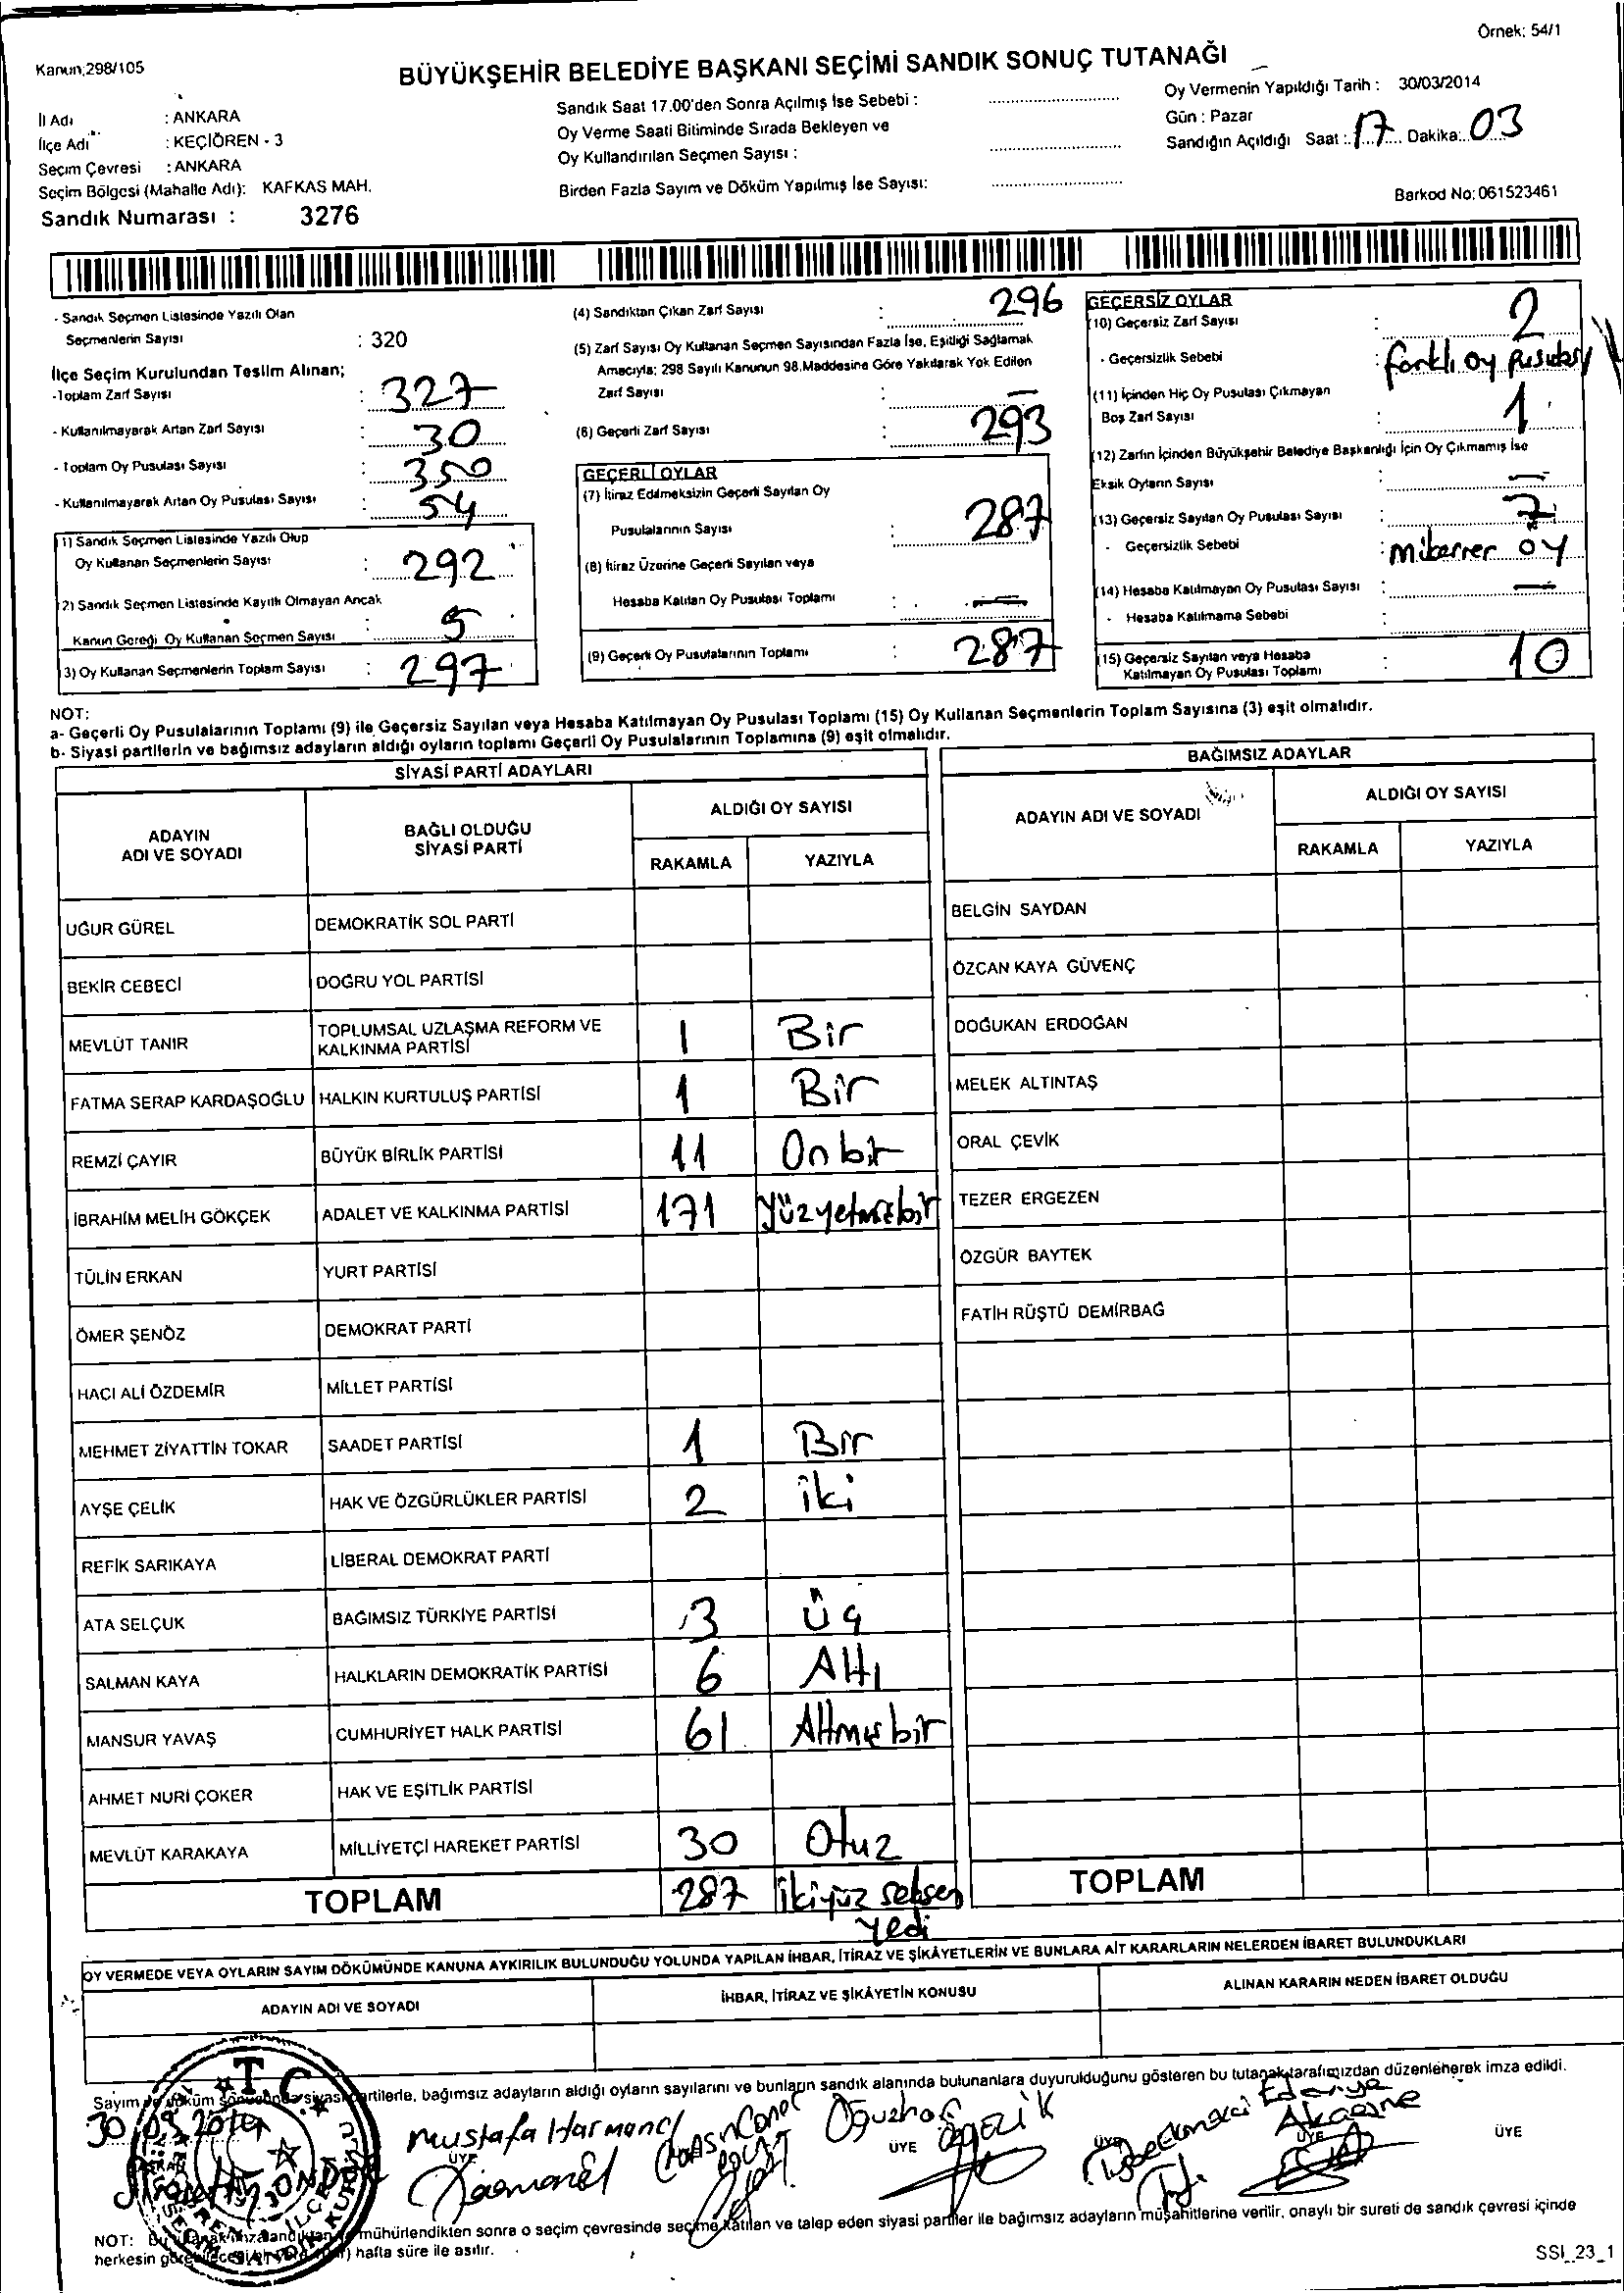 Örnek: 54/1
Kanun;298/105
BÜYÜKŞEHİR BELEDİYE BAŞKANI SEÇİMİ SANDIK SONUÇ TUTANAĞI
İl Adı : ANKARA
İlçe Adı : KEÇİÖREN - 3
Seçim Çevresi : ANKARA
Seçim Bölgesi (Mahalle Adı): KAFKAS MAH.
Sandık Numarası : 3276
Sandık Saat 17.00'den Sonra Açılmış İse Sebebi :
Oy Verme Saati Bitiminde Sırada Bekleyen ve
Oy Kullandırılan Seçmen Sayısı :
Birden Fazla Sayım ve Döküm Yapılmış İse Sayısı:
Oy Vermenin Yapıldığı Tarih : 30/03/2014
Gün : Pazar
Sandığın Açıldığı Saat : 17 Dakika: 03
Barkod No: 061523461
- Sandık Seçmen Listesinde Yazılı Olan
Seçmenlerin Sayısı : 320
İlçe Seçim Kurulundan Teslim Alınan;
-Toplam Zarf Sayısı : 327
- Kullanılmayarak Artan Zarf Sayısı : 30
- Toplam Oy Pusulası Sayısı : 350
- Kullanılmayarak Artan Oy Pusulası Sayısı : 54
1) Sandık Seçmen Listesinde Yazılı Olup
Oy Kullanan Seçmenlerin Sayısı : 292
2) Sandık Seçmen Listesinde Kayıtlı Olmayan Ancak
Kanun Gereği Oy Kullanan Seçmen Sayısı : 5
3) Oy Kullanan Seçmenlerin Toplam Sayısı : 297
(4) Sandıktan Çıkan Zarf Sayısı : 296
(5) Zarf Sayısı Oy Kullanan Seçmen Sayısından Fazla İse, Eşitliği Sağlamak
Amacıyla; 298 Sayılı Kanunun 98.Maddesine Göre Yakılarak Yok Edilen
Zarf Sayısı : —
(6) Geçerli Zarf Sayısı : 293
GEÇERLİ OYLAR
(7) İtiraz Edilmeksizin Geçerli Sayılan Oy
Pusulalarının Sayısı : 287
(8) İtiraz Üzerine Geçerli Sayılan veya
Hesaba Katılan Oy Pusulası Toplamı : —
(9) Geçerli Oy Pusulalarının Toplamı : 287
GEÇERSİZ OYLAR
(10) Geçersiz Zarf Sayısı : 2
- Geçersizlik Sebebi : farklı oy pusulası
(11) İçinden Hiç Oy Pusulası Çıkmayan
Boş Zarf Sayısı : 1
(12) Zarfın İçinden Büyükşehir Belediye Başkanlığı İçin Oy Çıkmamış İse
Eksik Oyların Sayısı : —
(13) Geçersiz Sayılan Oy Pusulası Sayısı : 7
- Geçersizlik Sebebi : mükerrer oy
(14) Hesaba Katılmayan Oy Pusulası Sayısı : —
- Hesaba Katılmama Sebebi :
(15) Geçersiz Sayılan veya Hesaba
Katılmayan Oy Pusulası Toplamı : 10
NOT:
a- Geçerli Oy Pusulalarının Toplamı (9) ile Geçersiz Sayılan veya Hesaba Katılmayan Oy Pusulası Toplamı (15) Oy Kullanan Seçmenlerin Toplam Sayısına (3) eşit olmalıdır.
b- Siyasi partilerin ve bağımsız adayların aldığı oyların toplamı Geçerli Oy Pusulalarının Toplamına (9) eşit olmalıdır.
SİYASİ PARTİ ADAYLARI
ADAYIN ADI VE SOYADI BAĞLI OLDUĞU SİYASİ PARTİ ALDIĞI OY SAYISI
RAKAMLA YAZIYLA
UĞUR GÜREL DEMOKRATİK SOL PARTİ
BEKİR CEBECİ DOĞRU YOL PARTİSİ
MEVLÜT TANIR TOPLUMSAL UZLAŞMA REFORM VE KALKINMA PARTİSİ 1 Bir
FATMA SERAP KARDAŞOĞLU HALKIN KURTULUŞ PARTİSİ 1 Bir
REMZİ ÇAYIR BÜYÜK BİRLİK PARTİSİ 11 Onbir
İBRAHİM MELİH GÖKÇEK ADALET VE KALKINMA PARTİSİ 171 Yüzyetmişbir
TÜLİN ERKAN YURT PARTİSİ
ÖMER ŞENÖZ DEMOKRAT PARTİ
HACI ALİ ÖZDEMİR MİLLET PARTİSİ
MEHMET ZİYATTİN TOKAR SAADET PARTİSİ 1 Bir
AYŞE ÇELİK HAK VE ÖZGÜRLÜKLER PARTİSİ 2 iki
REFİK SARIKAYA LİBERAL DEMOKRAT PARTİ
ATA SELÇUK BAĞIMSIZ TÜRKİYE PARTİSİ 3 Üç
SALMAN KAYA HALKLARIN DEMOKRATİK PARTİSİ 6 Altı
MANSUR YAVAŞ CUMHURİYET HALK PARTİSİ 61 Altmışbir
AHMET NURİ ÇOKER HAK VE EŞİTLİK PARTİSİ
MEVLÜT KARAKAYA MİLLİYETÇİ HAREKET PARTİSİ 30 Otuz
TOPLAM 287 ikiyüz seksen yedi
BAĞIMSIZ ADAYLAR
ADAYIN ADI VE SOYADI ALDIĞI OY SAYISI
RAKAMLA YAZIYLA
BELGİN SAYDAN
ÖZCAN KAYA GÜVENÇ
DOĞUKAN ERDOĞAN
MELEK ALTINTAŞ
ORAL ÇEVİK
TEZER ERGEZEN
ÖZGÜR BAYTEK
FATİH RÜŞTÜ DEMİRBAĞ
TOPLAM
OY VERMEDE VEYA OYLARIN SAYIM DÖKÜMÜNDE KANUNA AYKIRILIK BULUNDUĞU YOLUNDA YAPILAN İHBAR, İTİRAZ VE ŞİKÂYETLERİN VE BUNLARA AİT KARARLARIN NELERDEN İBARET BULUNDUKLARI
ADAYIN ADI VE SOYADI İHBAR, İTİRAZ VE ŞİKÂYETİN KONUSU ALINAN KARARIN NEDEN İBARET OLDUĞU
Sayım ve döküm sonucunda siyasi partilerle, bağımsız adayların aldığı oyların sayılarını ve bunların sandık alanında bulunanlara duyurulduğunu gösteren bu tutanak tarafımızdan düzenlenerek imza edildi.
30/03/2014
T.C.
Mustafa Harmancı
ÜYE
Oğuzhan
ÜYE
ÜYE
ÜYE
ÜYE
NOT: Bu tutanak imzalandıktan ve mühürlendikten sonra o seçim çevresinde seçime katılan ve talep eden siyasi partiler ile bağımsız adayların müşahitlerine verilir, onaylı bir sureti de sandık çevresi içinde
herkesin görebileceği bir yere hafta süre ile asılır.
SSI_23_1